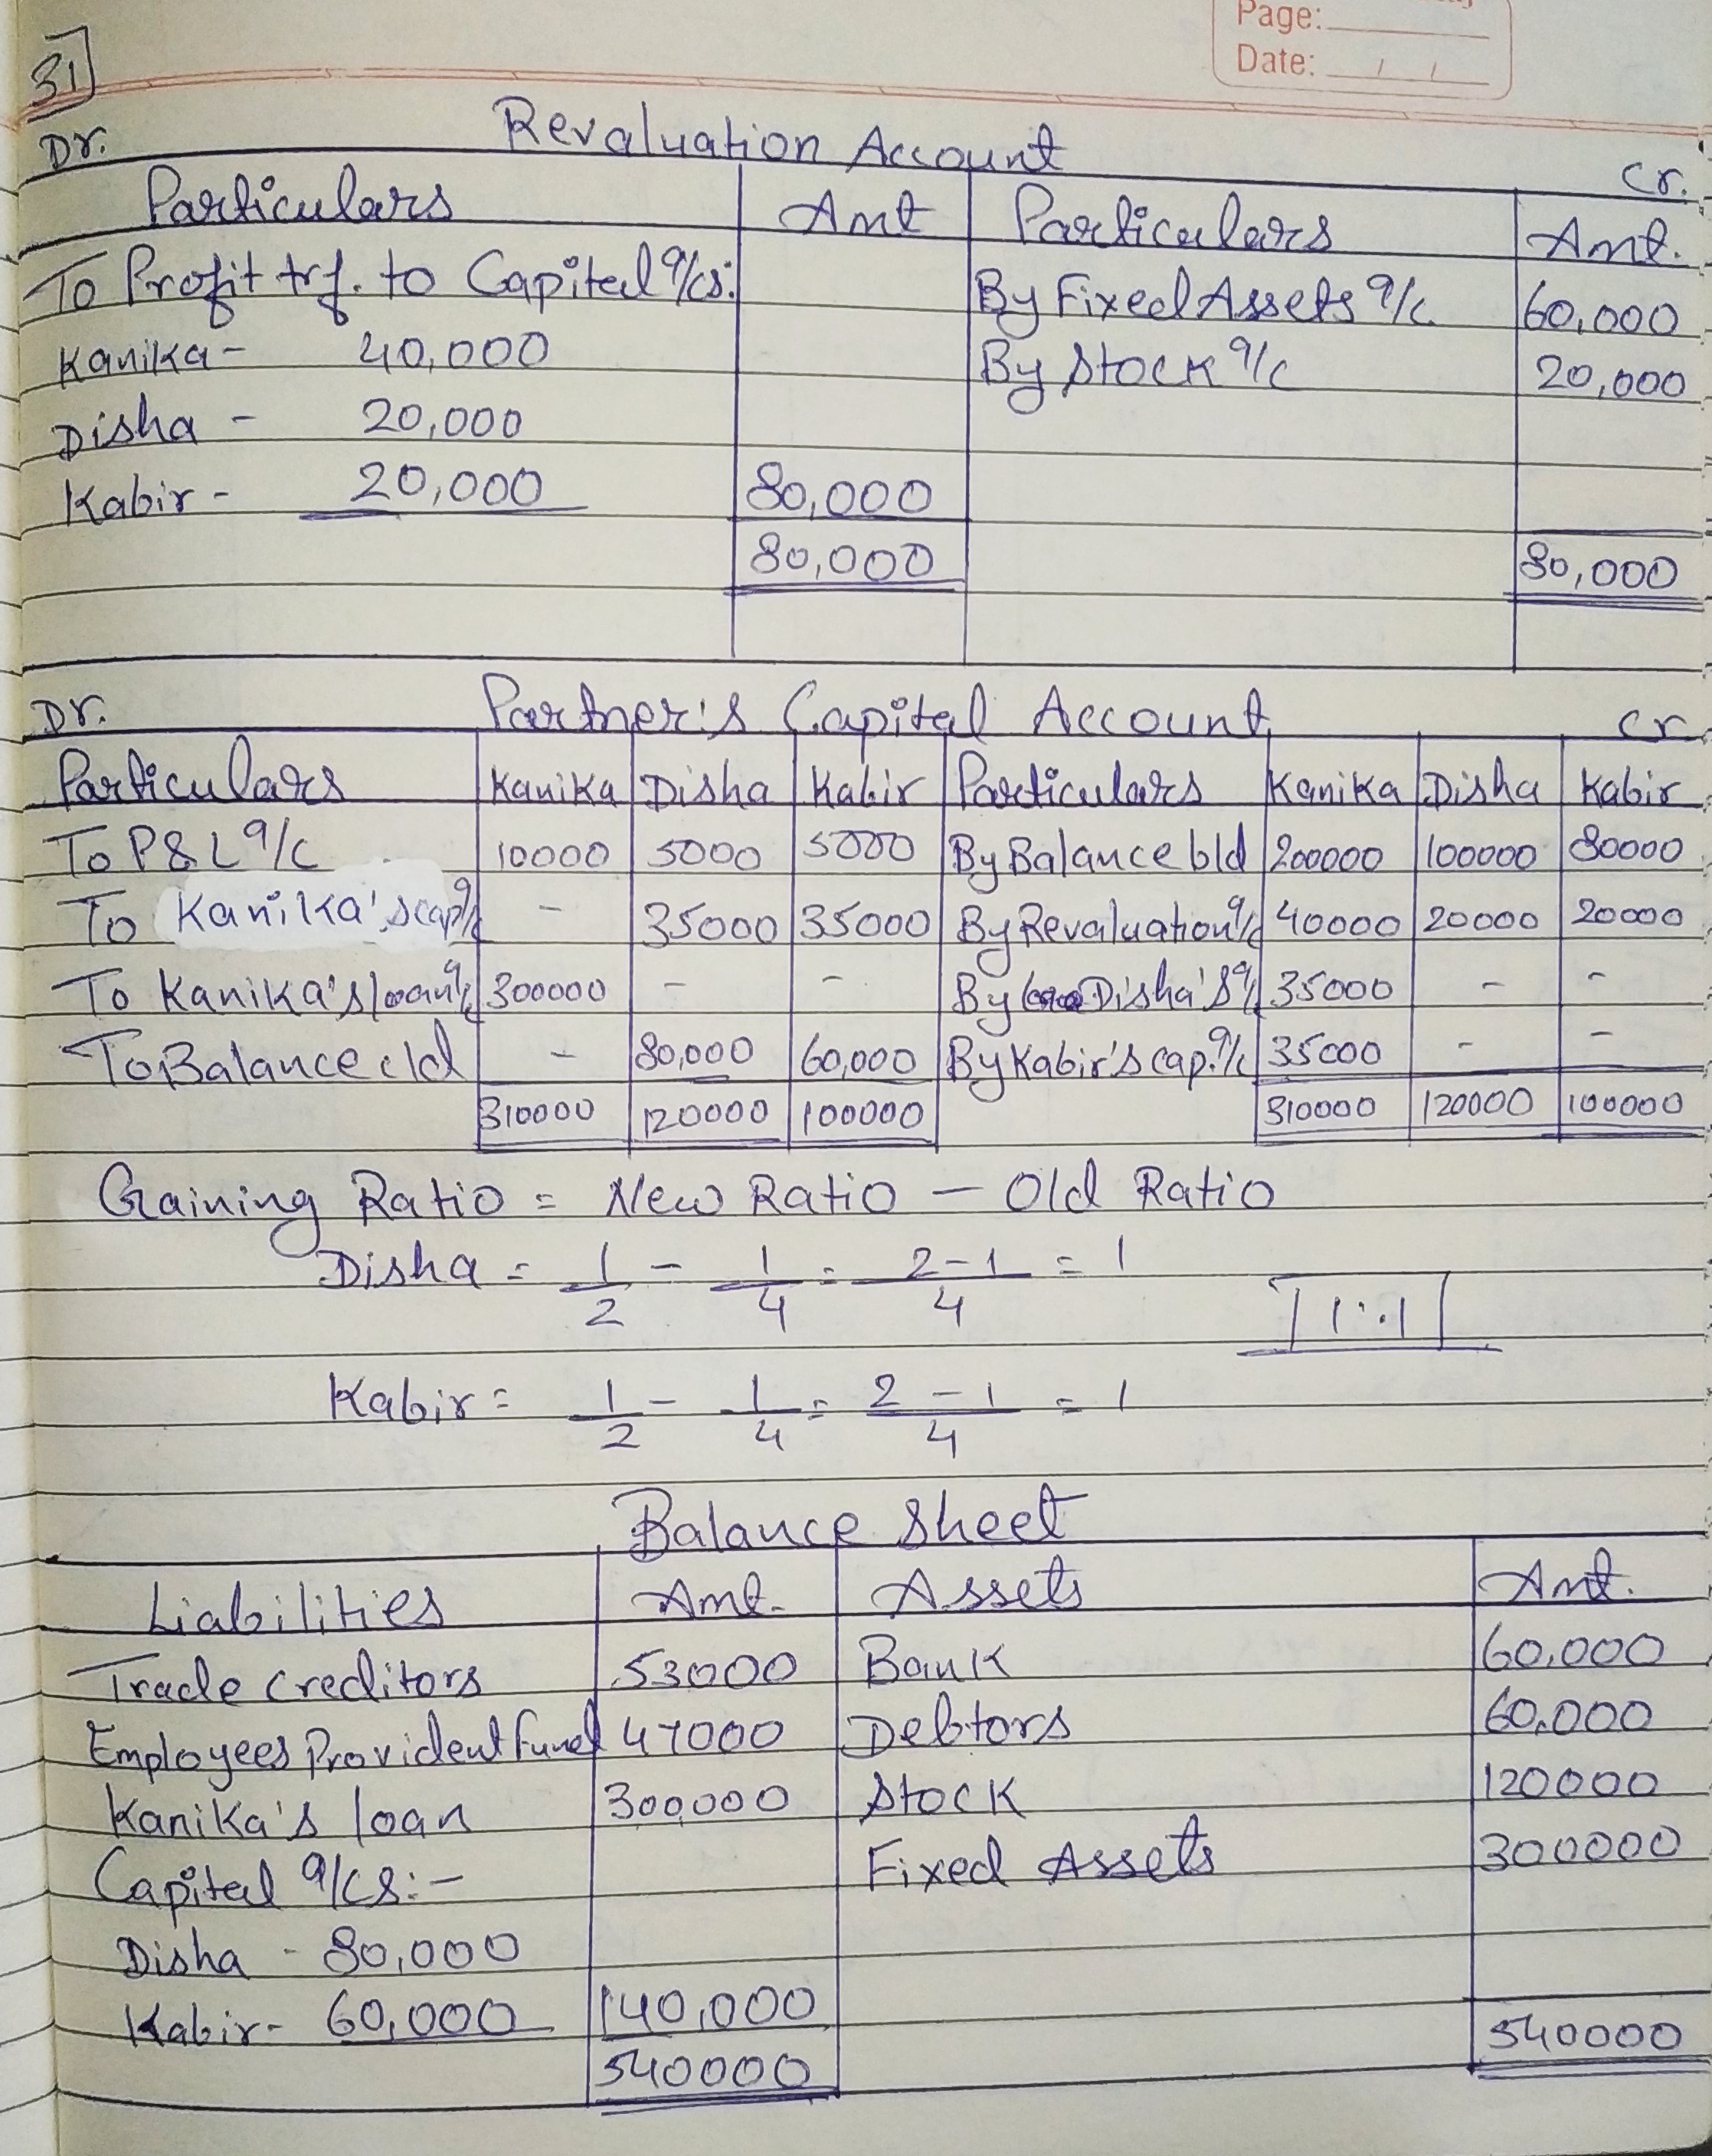 Page:
Date: / /
31
Dr. Revaluation Account Cr.
Particulars Amt Particulars Amt.
To Profit trf. to Capital a/cs: By Fixed Assets a/c 60,000
Kanika - 40,000 By Stock a/c 20,000
Disha - 20,000
Kabir - 20,000 80,000
80,000 80,000
Dr. Partner's Capital Account Cr
Particulars Kanika Disha Kabir Particulars Kanika Disha Kabir
To P&L a/c 10000 5000 5000 By Balance b/d 200000 100000 80000
To Kanika's cap a/c - 35000 35000 By Revaluation a/c 40000 20000 20000
To Kanika's loan a/c 300000 - - By Disha's a/c 35000 - -
To Balance c/d - 80,000 60,000 By Kabir's cap. a/c 35000 - -
310000 120000 100000 310000 120000 100000
Gaining Ratio = New Ratio - Old Ratio
Disha = 1/2 - 1/4 = 2-1/4 = 1 1:1
Kabir = 1/2 - 1/4 = 2-1/4 = 1
Balance Sheet
Liabilities Amt. Assets Amt.
Trade Creditors 53000 Bank 60,000
Employees Provident Fund 47000 Debtors 60,000
Kanika's loan 300,000 Stock 120000
Capital a/cs:- Fixed Assets 300000
Disha - 80,000
Kabir - 60,000 140,000
540000 540000